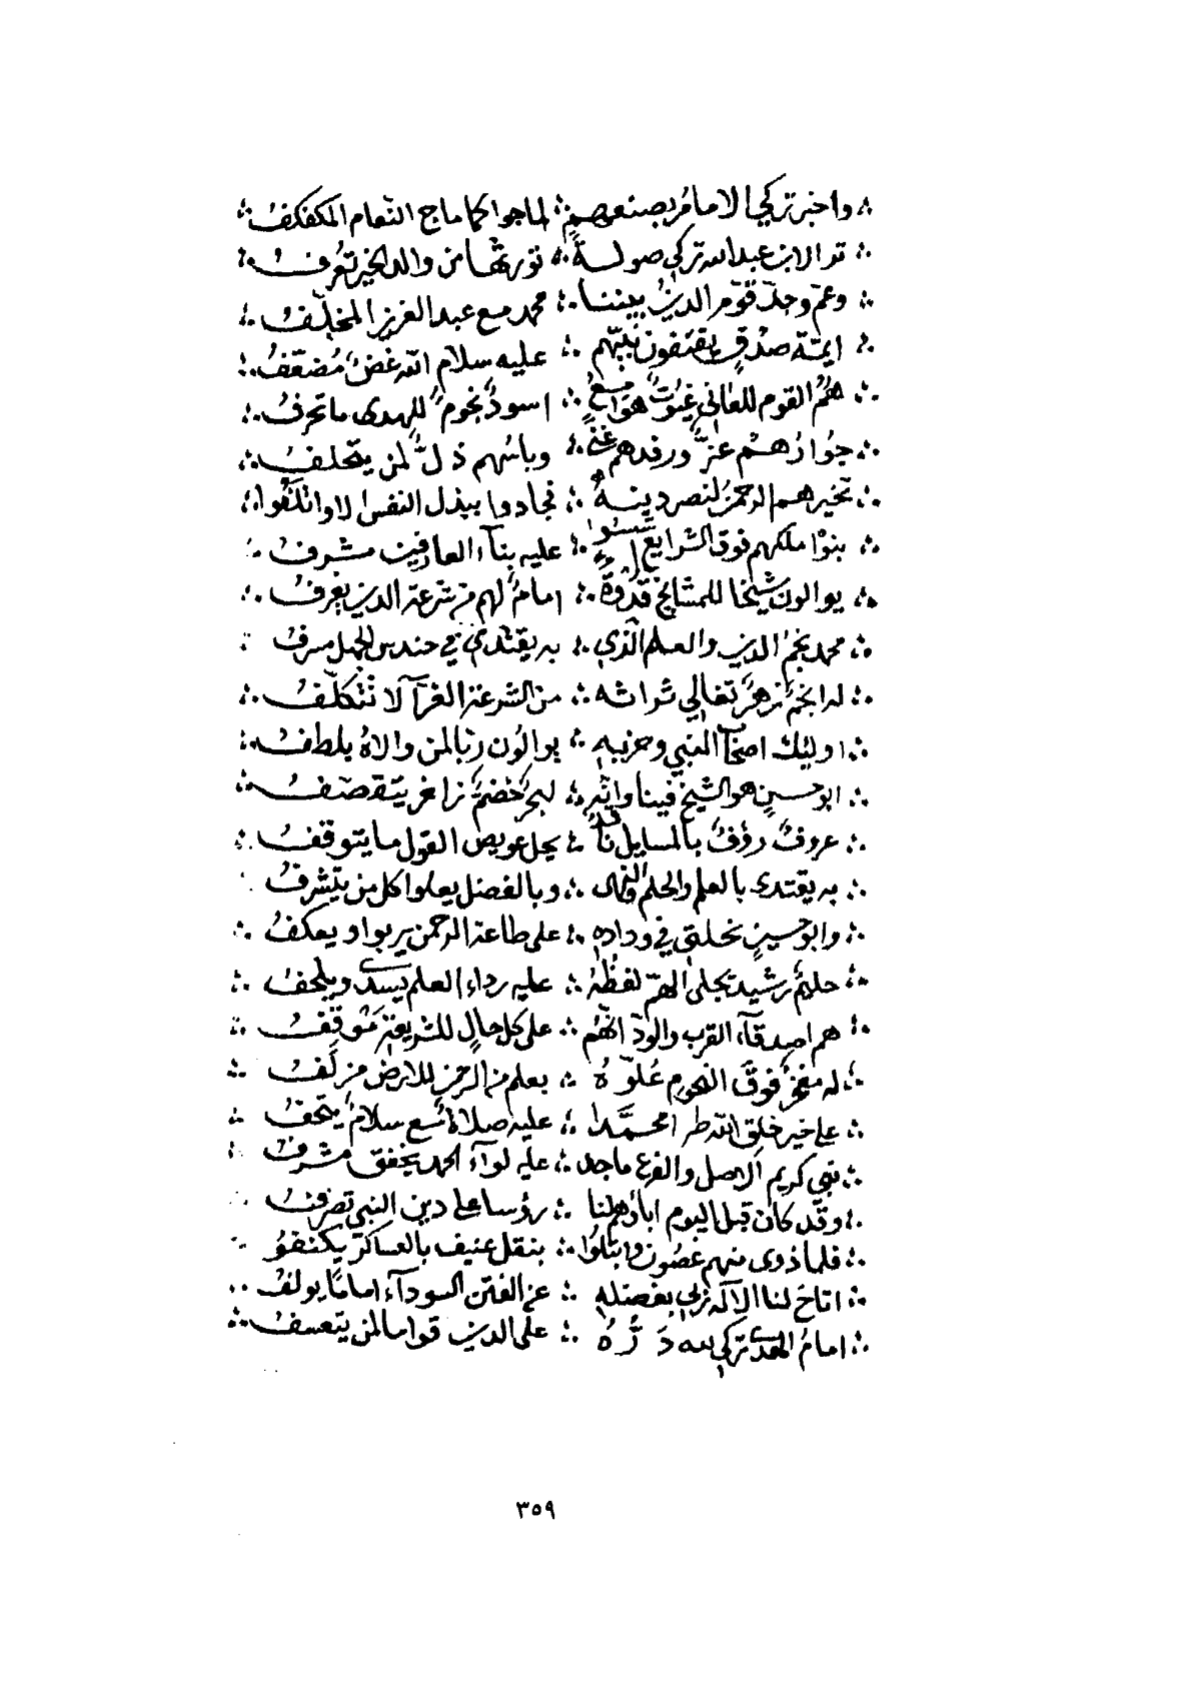 ؞ واخبر تركي الامامُ بصنعهم ؞ لماجوا كما ماج النعام المكفكفُ ؞
؞ تر الابن عبدالله تركي صولةً ؞ تورثها من والد الخير تعرفُ ؞
؞ وعمّ وجدّ قوّم الدينُ بيننا ؞ محمد مع عبد العزيز المخلّفُ ؞
؞ ايمّة صدْقٍ يقتفون نبيّهم ؞ عليه سلام الله غضٌ مُضعّفُ ؞
؞ همُ القوم للعاني غيُوثٌ هوامعٌ ؞ اسودٌ نجومٌ للهدى ما تحرفُ ؞
؞ جِوارُهم عزٌّ ورفدهم غنىً ؞ وباسُهم ذلٌّ لمن يتخلفُ ؞
؞ تخيرهم الرحمنُ لنصر دينهُ ؞ فجادوا ببذل النفس لا وانكفُوا ؞
؞ بنوْا ملكهم فوق الشرايع اسسُوا ؞ عليه بناء العارفين مشرفُ ؞
؞ يوالون شيخا للمشايخ قدْوةً ؞ امامٌ لهم من شرعة الدين يغرفُ ؞
؞ محمد نجمُ الدين والعلم الّذي ؞ به يقتدي في حندس الجهل مسرفُ ؞
؞ له انجمٌ زهرٌ تغالي تراثه ؞ من الشرعة الغرآ لا تتكلّفُ ؞
؞ اوليك اصحاب النبي وحزبهِ ؞ يوالُون ربا لمن والاهُ يلطفُ ؞
؞ ابو حسينٍ هو الشيخ فينا وانهِ ؞ لبحرٌ خضمٌّ زاخر يتقصّفُ ؞
؞ عروفٌ رؤفٌ بالمسايل ناقدٌ ؞ يحل عويص القول ما يتوقفُ ؞
؞ به يقتدى بالعلم والحلم والنهى ؞ وبالفضل يعلوا كل من يتشرفُ ؞
؞ وابو حسينٍ نحلتي في ودادهِ ؞ على طاعة الرحمن يربوا ويعكفُ ؞
؞ حليمٌ رشيد تجلى الهمّ لفظُهُ ؞ عليه رداء العلم يسدى ويلحفُ ؞
؞ هم اصدقاء القرب والودّ انّهُم ؞ على كل حالٍ للشريعة مَوقفُ ؞
؞ له مفخرٌ فوق النجوم عُلوّهُ ؞ بعلم من الرحمن للارض مزلفُ ؞
؞ على خير خلق الله طرا محمّدا ؞ عليه صلاة مع سلامٌ يتحفُ ؞
؞ نبي كريم الاصل والفرع ماجد ؞ عليه لواء الحمد يخفق مشرفُ ؞
؞ وقد كان قبل اليوم اباؤهم لنا ؞ رؤسا على دين النبي تصرفُ ؞
؞ فلما ذوى منهم غصُون وابتلُوا ؞ بنقل عنيف بالعساكر يكنفوُ
؞ اتاحَ لنا الاله ربي بفضلهِ ؞ عن الفتن السودآء امامًا يولفُ
؞ امامُ الهدى تركي لله دَرُّهُ ؞ على الدين قواما لمن يتعسفُ ؞
٣٥٩